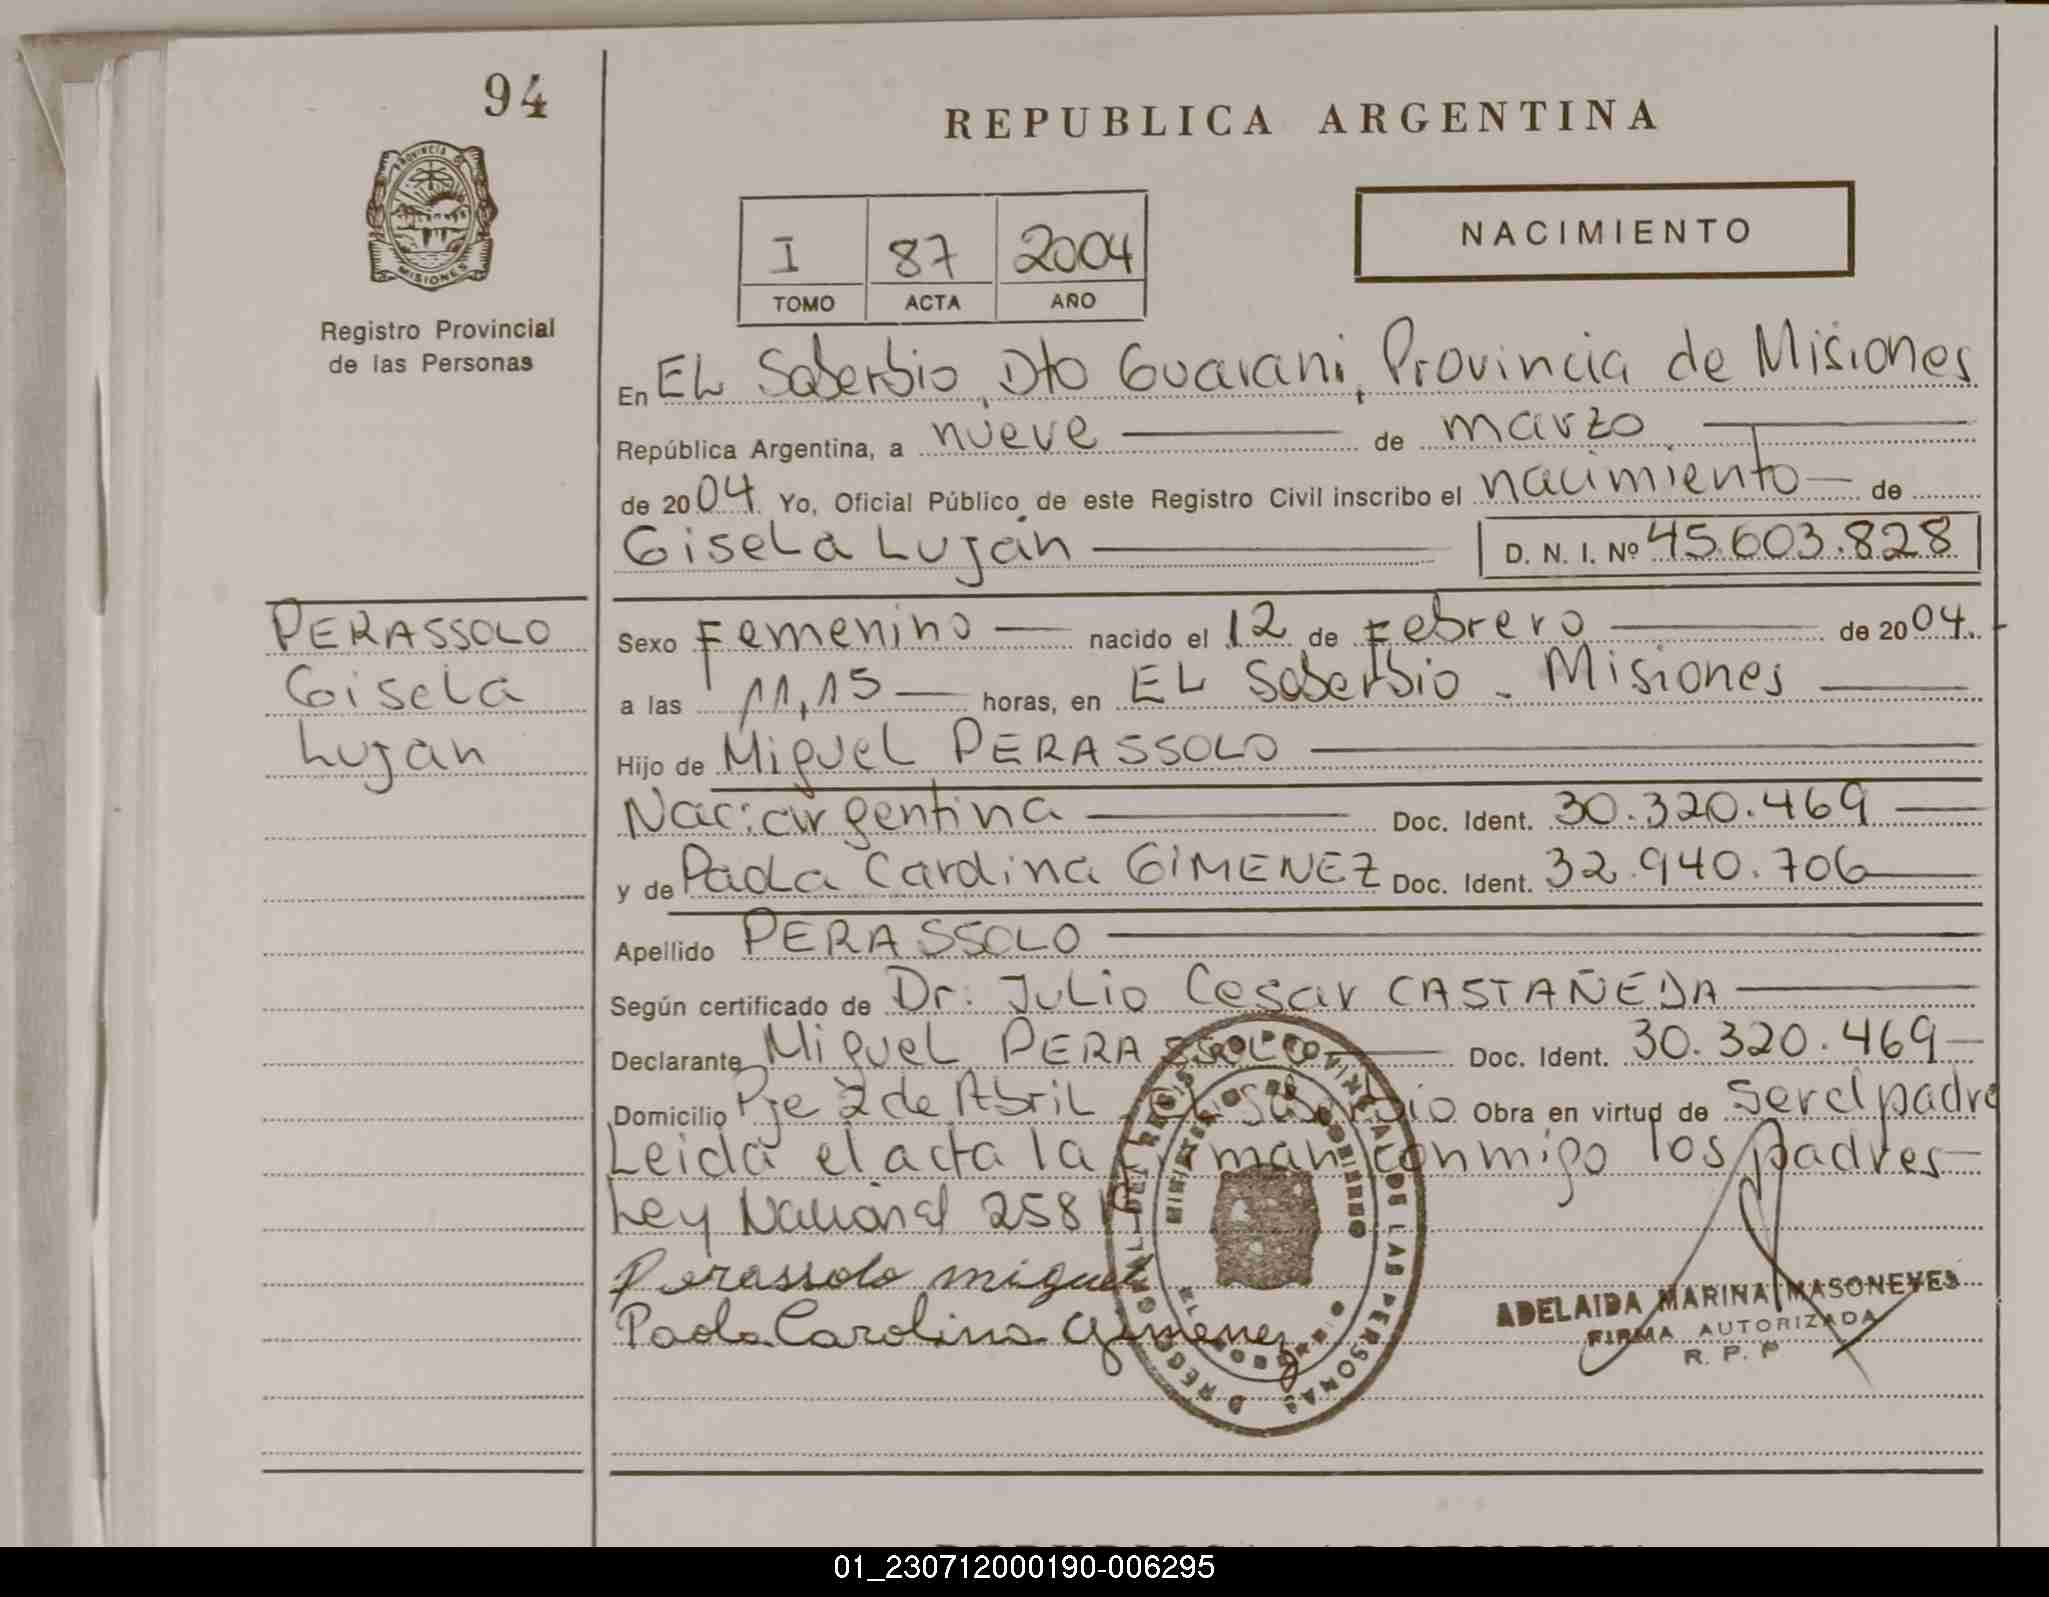 94
REPUBLICA ARGENTINA
PROVINCIA DE
MISIONES
Registro Provincial
de las Personas
NACIMIENTO
I 87 2004
TOMO ACTA AÑO
En EL Soberbio, Dto Guarani, Provincia de Misiones
República Argentina, a nueve de marzo
de 2004 Yo, Oficial Público de este Registro Civil inscribo el nacimiento de
Gisela Luján D. N. I. Nº 45.603.828
PERASSOLO
Gisela
Lujan
Sexo Femenino nacido el 12 de Febrero de 2004.
a las 11,15 horas, en EL Soberbio - Misiones
Hijo de Miguel PERASSOLO
Nac: argentina Doc. Ident. 30.320.469
y de Paola Carolina GIMENEZ Doc. Ident. 32.940.706
Apellido PERASSOLO
Según certificado de Dr. Julio Cesar CASTAÑEDA
Declarante Miguel PERASSOLO Doc. Ident. 30.320.469
Domicilio Pje 2 de Abril - El Soberbio Obra en virtud de ser el padre
Leida el acta la firman conmigo los padres
Ley Nacional 25819
Perassolo miguel
Paola Carolina Gimenez
REGISTRO PROVINCIAL DE LAS PERSONAS
MINISTERIO DE GOBIERNO
EL SOBERBIO
ADELAIDA MARINA MASONEVES
FIRMA AUTORIZADA
R. P. P
01_230712000190-006295